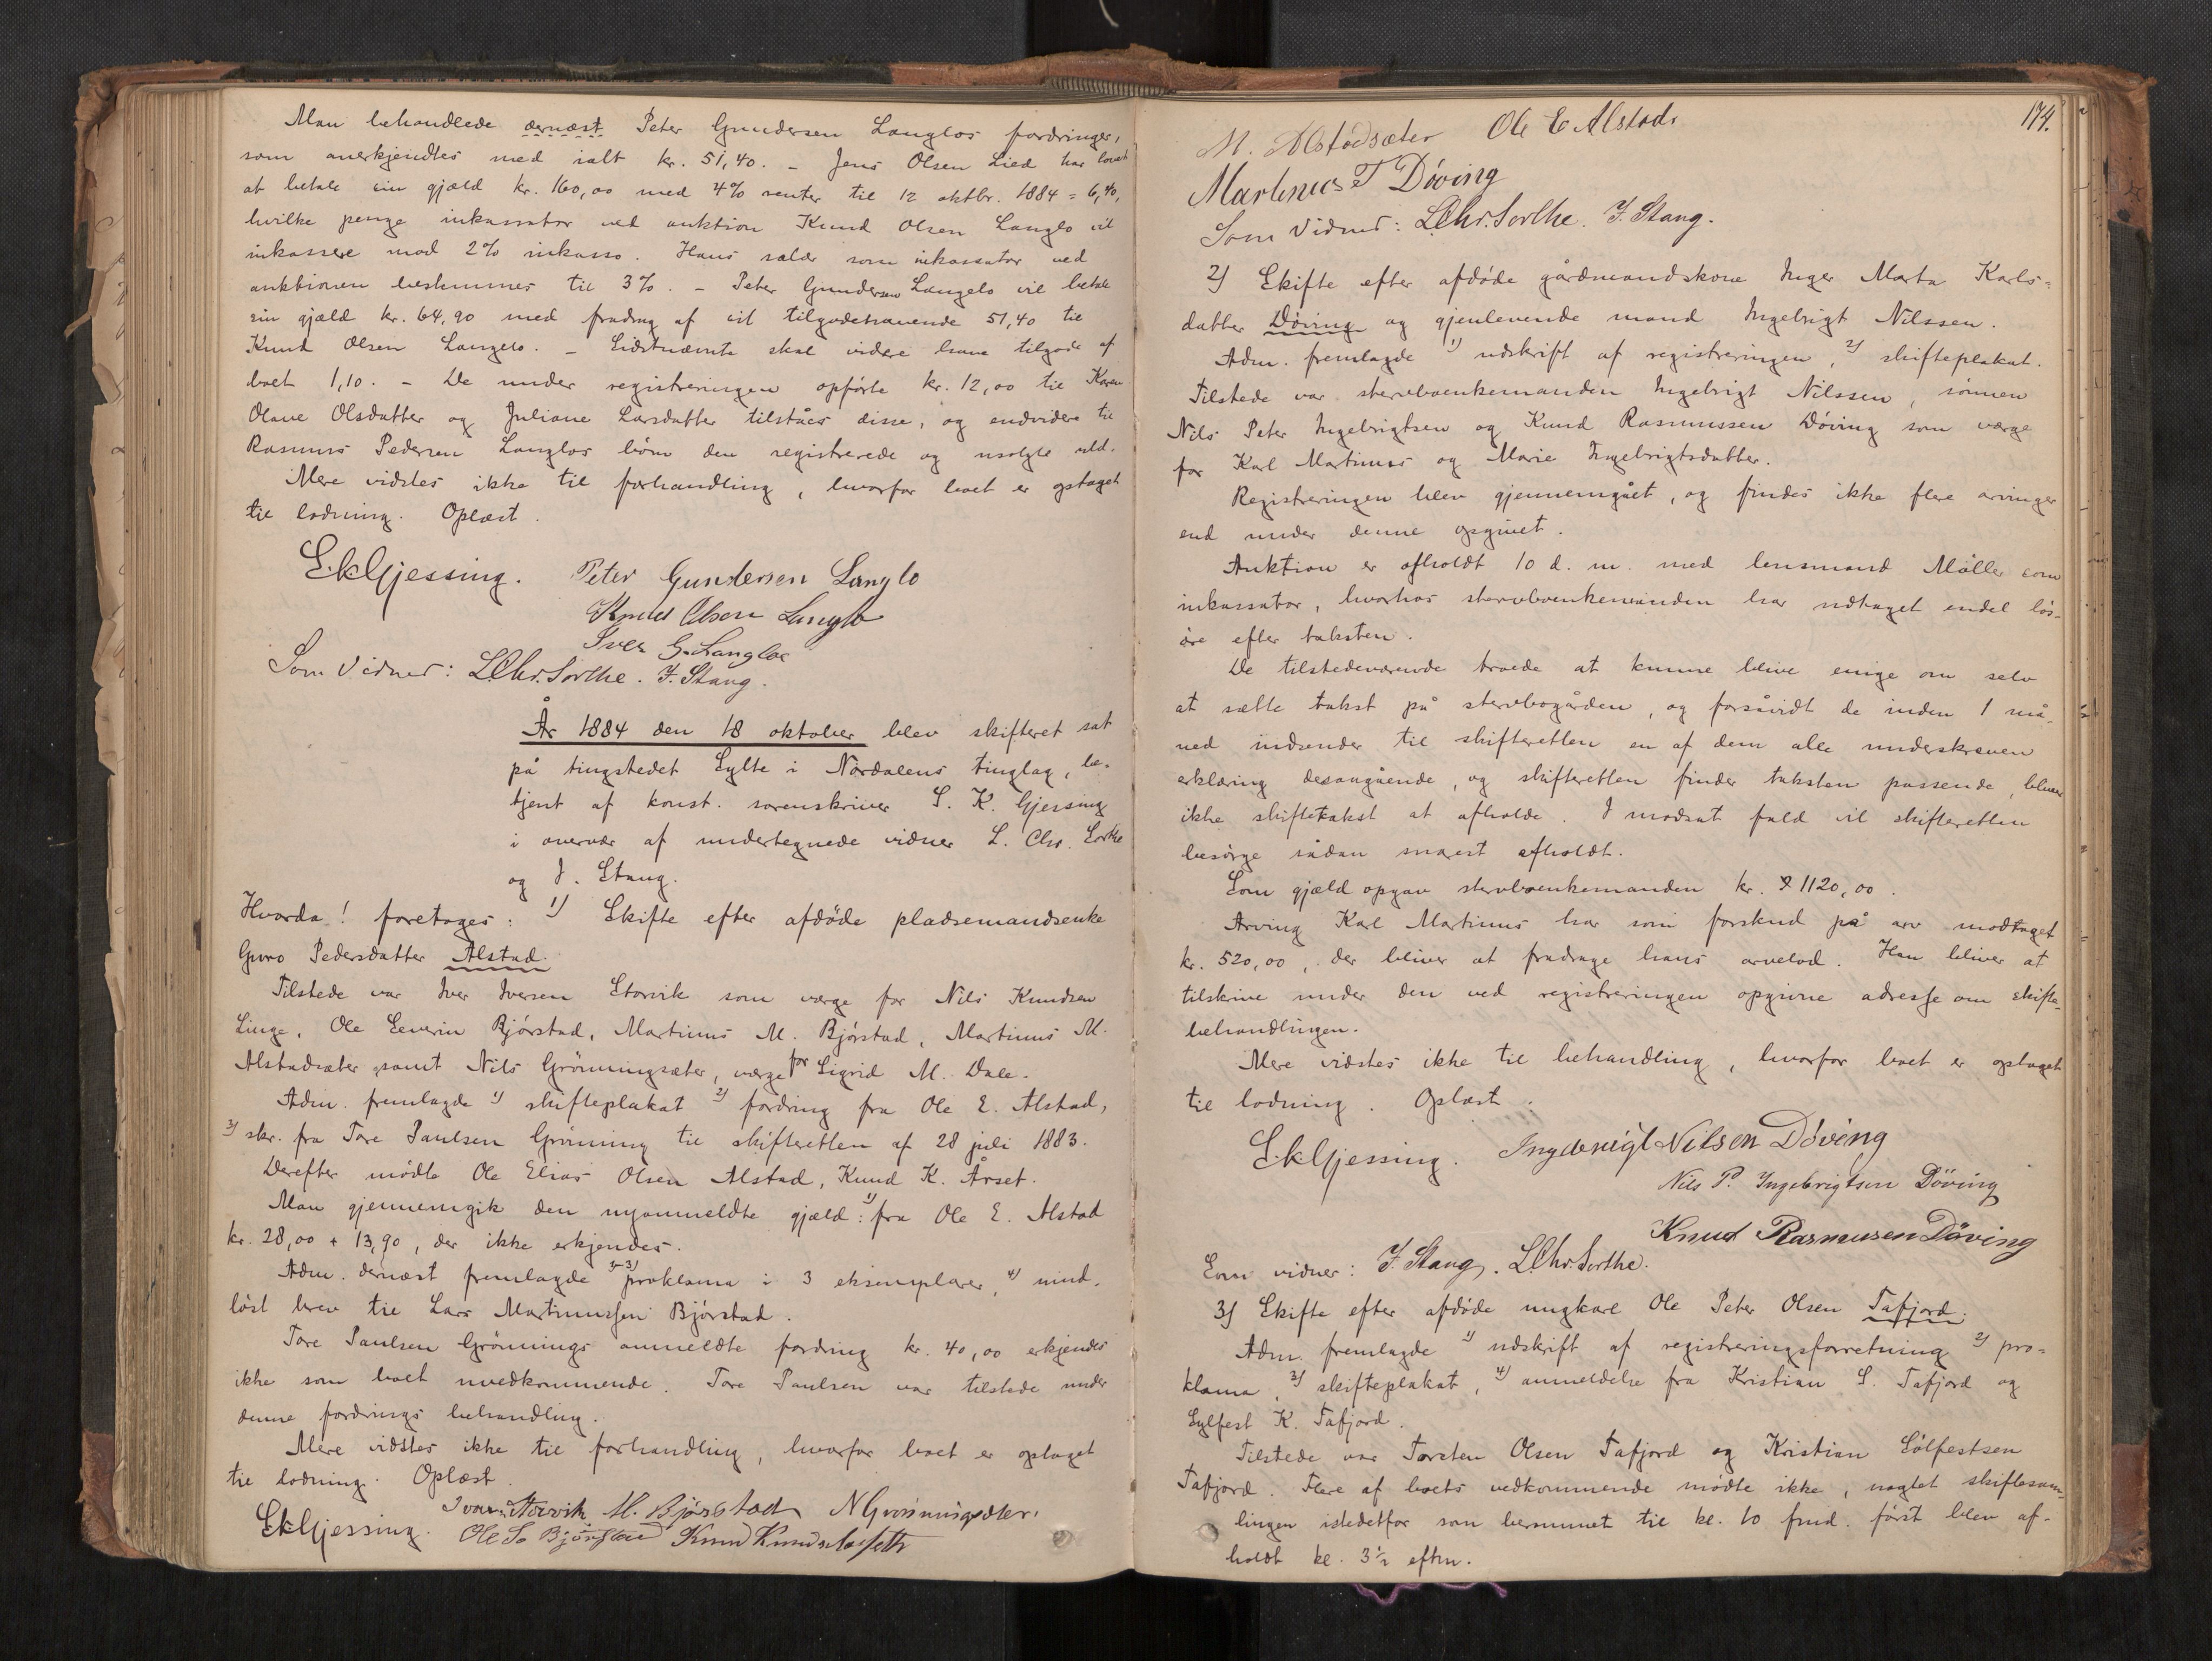 Man behandlede dernæst Peter Gundersen Langlos fordringer,
som anerkjendtes med ialt kr. 51,40. – Jens Olsen Lied har lovet
at betale sin gjæld kr. 160,00 med 4% renter til 12 oktbr. 1884 = 6,40,
hvilke penge inkassator ved auktion Knud Olsen Langlo vil
inkassere mod 2% inkasso. Hans salær som inkassator ved
auktionen bestemmes til 3%. – Peter Gundersen Langelo vil betale
sin gjæld kr. 64,90 med fradrag af sit tilgodehavende 51,40 til
Knud Olsen Langelo. – Sidstnævnte skal videre have tilgode af
boet 1,10. – De under registreringen opførte kr. 12,00 til Karen
Olave Olsdatter og Juliane Larsdatter tilståes disse, og endvidere til
Rasmus Pedersen Langlos børn den registrerede og usolgte uld.
Mere vidstes ikke til forhandling, hvorfor boet er optaget
til lodning. Oplæst.
S.K. Gjessing. Peter Gundersen Langlo
Knud Olsen Langlo
Iver G. Langloe
Som Vidner: L. Chr. Sorthe. J. Stang.
År 1884 den 18 oktober blev skifteret sat
på tingstedet Sylte i Nordalens tinglag, be-
tjent af konst. sorenskriver S. K. Gjessing
i overvær af undertegnede vidner L. Chr. Sorthe
og J. Stang.
Hvorda! foretoges: 1) Skifte efter afdøde pladsemandsenke
Guro Pedersdatter Alstad.
Tilstede var Iver Iversen Storvik som værge for Nils Knudsen
Linge, Ole Severin Bjørstad, Martinus M. Bjørstad, Martinus M.
Alstadsæter samt Nils Grönningsæter, værge for Sigrid M. Dale.
Adm. fremlagde 1) skifteplakat 2) fordring fra Ole E. Alstad,
3) skr. fra Tore Paulsen Grönning til skifteretten af 28 juli 1883.
Derefter mødte Ole Elias Olsen Alstad, Knud K. Årset.
Man gjennemgik den nyanmeldte gjæld: 1) fra Ole E. Alstad
kr. 28,00 + 13,90, der ikke erkjendes.
Adm. dernæst fremlagde proklama i 3 eksemplarer, 4) uind-
løst brev til Lars Martinussen Bjørstad.
Tore Paulsen Grönnings anmeldte fordring kr. 40,00 erkjendes
ikke som boet uvedkommende. Tore Paulsen var tilstede under
denne fordrings behandling.
Mere vidstes ikke til forhandling, hvorfor boet er optaget
til lodning. Oplæst.
S.K. Gjessing. Ivar Storvik M. Bjørstad N Grønningsæter.
Ole S. Bjørstad Knud Knudsen
174.
M. Alstadsæter Ole E Alstad.
Martinus T Döving
Som Vidner: L. Chr. Sorthe. J. Stang.
2) Skifte efter afdøde gårdmandskone Inger Marta Karls-
datter Döving og gjenlevende mand Ingebrigt Nilssen.
Adm. fremlagde 1) udskrift af registreringen, 2) skifteplakat.
Tilstede var stervboenkemanden Ingebrigt Nilssen, sønnen
Nils Peter Ingebrigtsen og Knud Rasmussen Döving som værge
for Karl Martinus og Marie Ingebrigtsdatter.
Registreringen blev gjennemgået, og findes ikke flere arvinger
end under denne opgivet.
Auktion er afholdt 10 d. m. med lensmand Møller som
inkassator, hvorhos stervboenkemanden har udtaget endel løs-
øre efter taksten.
De tilstedeværende troede at kunne blive enige om selv
at sætte takst på stervbogården, og forsåvidt de inden 1 må-
ned indsender til skifteretten en af dem alle underskreven
erklæring desangående, og skifteretten finder taksten passende, bliver
ikke skiftetakst at afholde. I modsat fald vil skifteretten
besørge sådan snarest afholdt.
Som gjæld opgav stervboenkemanden kr. 1120,00.
Arving Karl Martinus har som forskud på arv modtaget
kr. 520,00, der bliver at fradrage hans arvelod. Han bliver at
tilskrive under den ved registreringen opgivne adresse om skifte-
behandlingen.
Mere vidstes ikke til behandling, hvorfor boet er optaget
til lodning. Oplæst.
S.K. Gjessing. Ingebrigt Nilsen Döving
Nils P. Ingebrigtsen Döving
Knud Rasmusen Döving
Som vidner: J. Stang. L. Chr. Sorthe.
3) Skifte efter afdøde ungkarl Ole Peter Olsen Tafjord.
Adm. fremlagde 1) udskrift af registreringsforretning 2) pro-
klama, 3) skifteplakat, 4) anmeldelse fra Kristian S. Tafjord og
Sylfest K. Tafjord.
Tilstede var Torsten Olsen Tafjord og Kristian Sölfestsen
Tafjord. Flere af boets vedkommende mødte ikke, uagtet skiftesam-
lingen istedetfor som berammet til kl. 10 fmd. først blev af-
holdt kl. 3½ eftm.